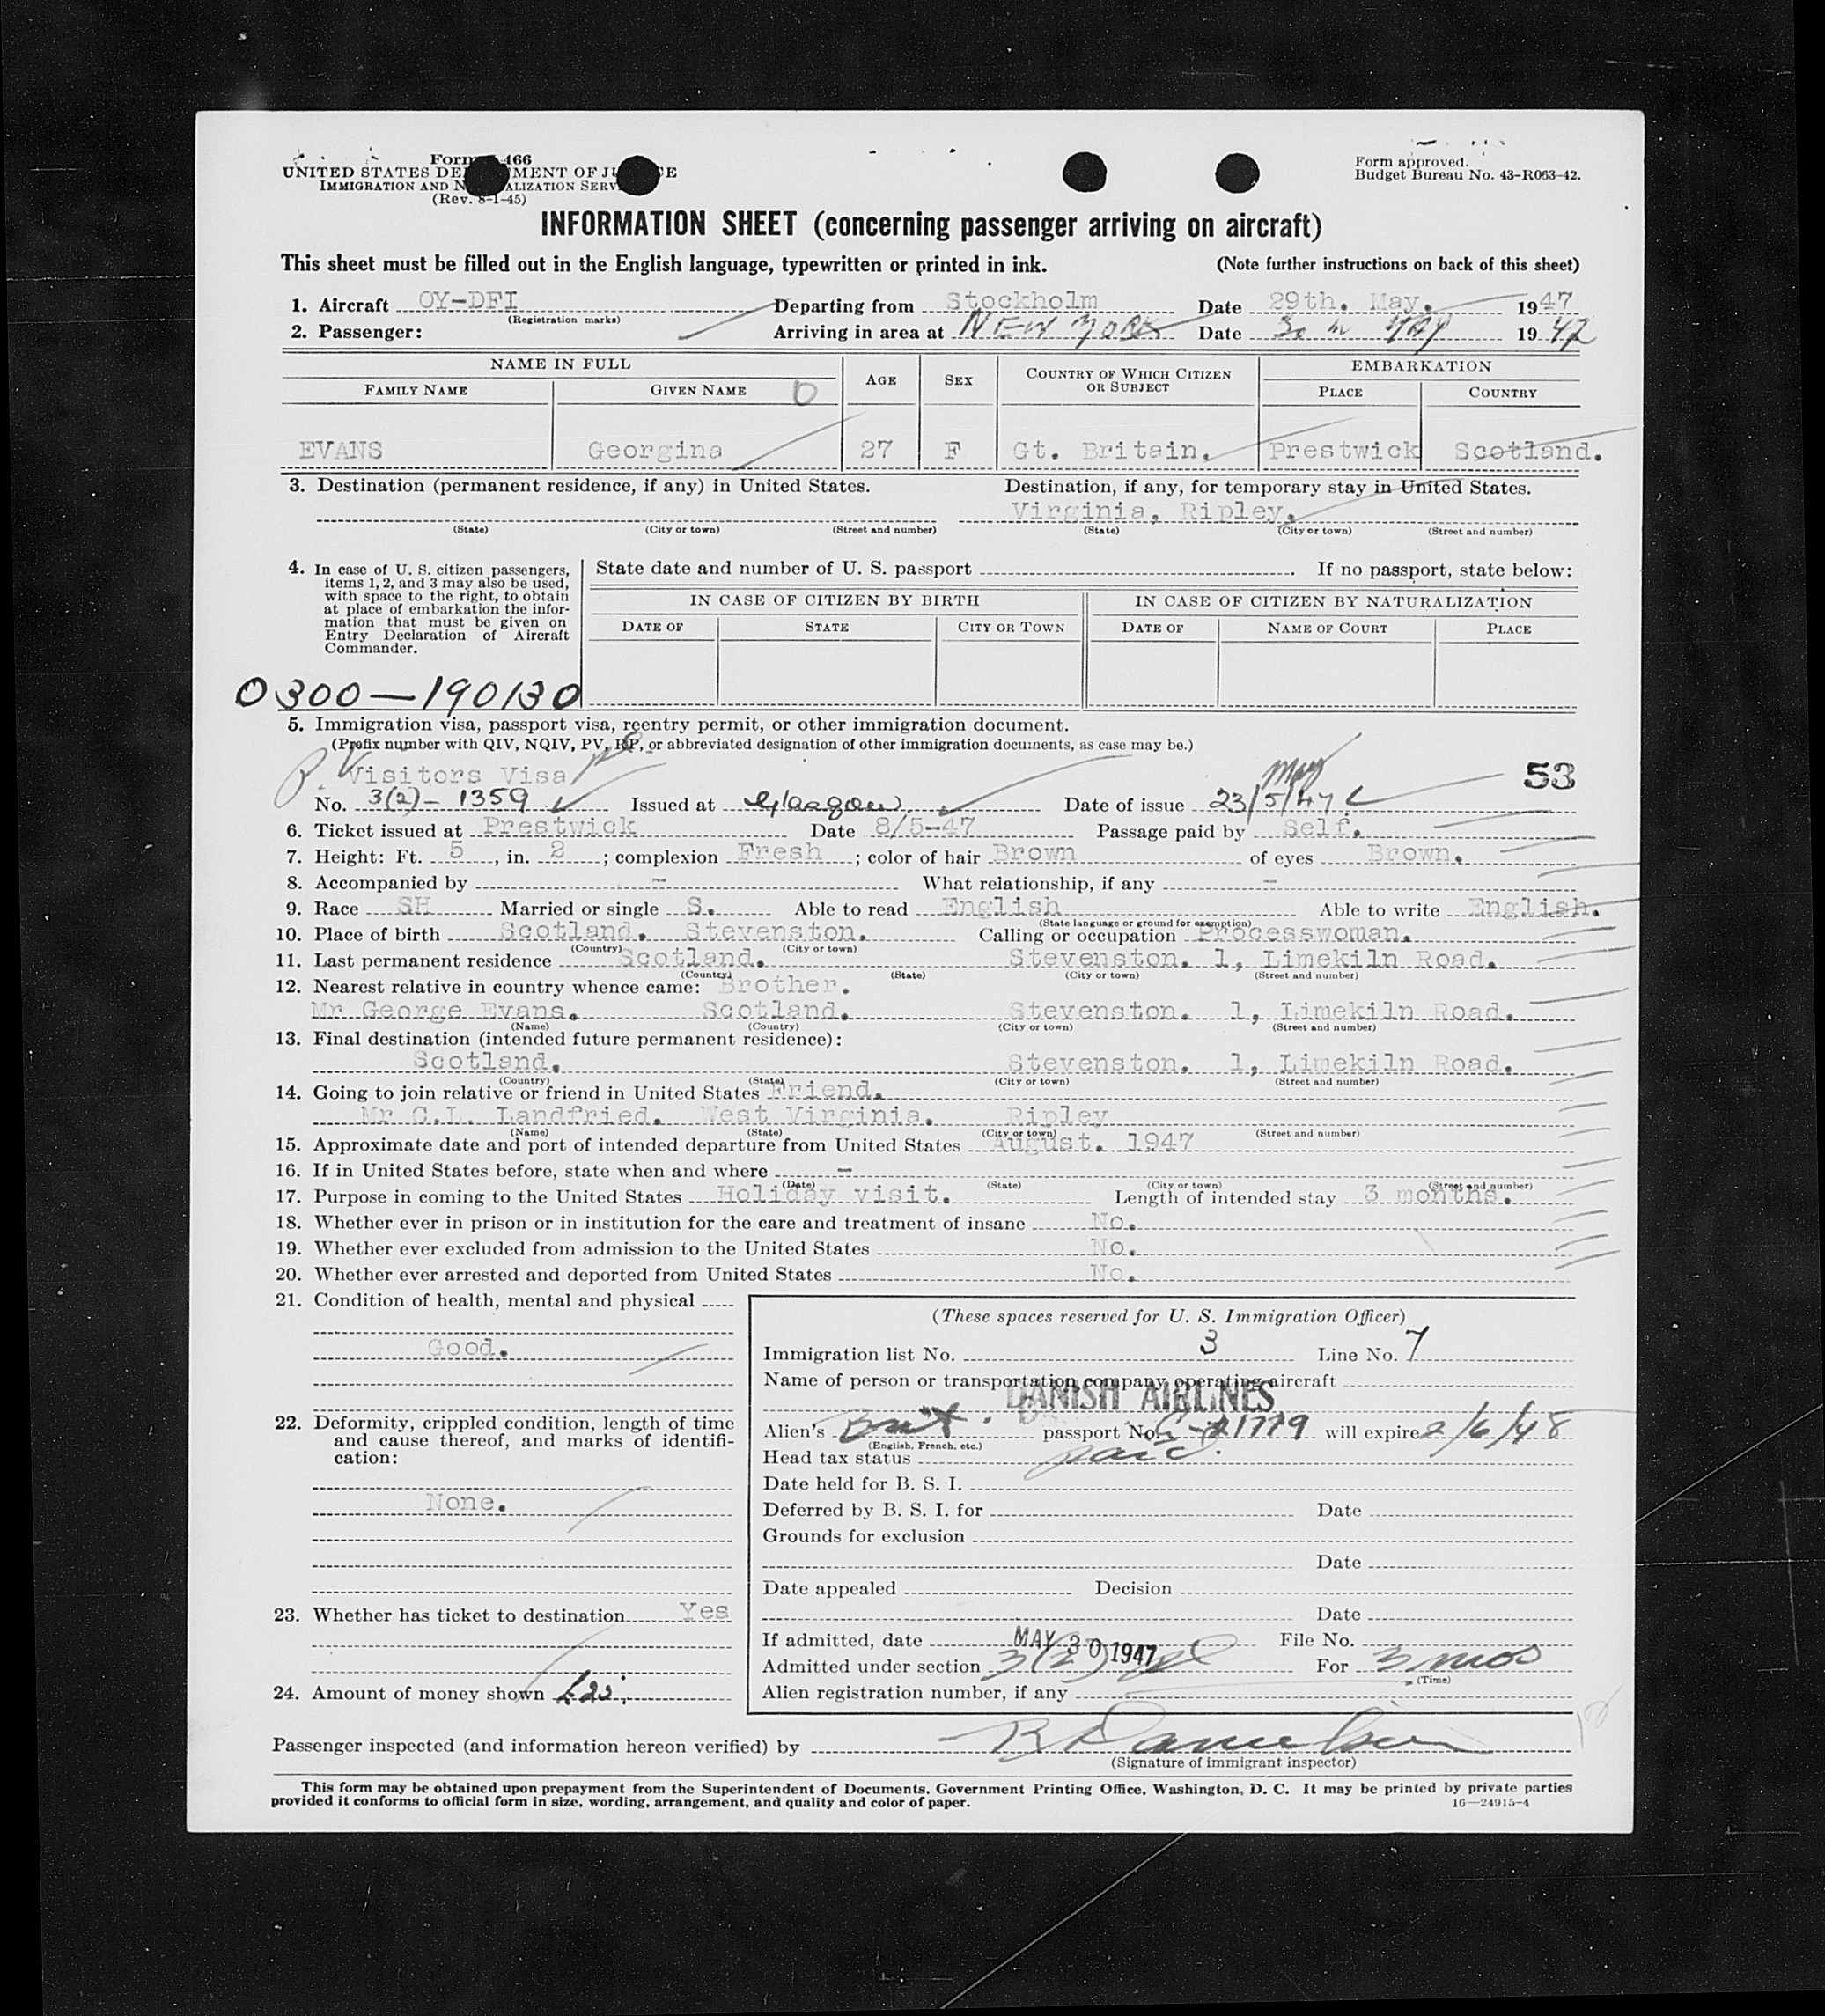 Form 466
UNITED STATES DEPARTMENT OF JUSTICE
IMMIGRATION AND NATURALIZATION SERVICE
(Rev. 8-1-45)
Form approved.
Budget Bureau No. 43-R063-42.
INFORMATION SHEET (concerning passenger arriving on aircraft)
This sheet must be filled out in the English language, typewritten or printed in ink. (Note further instructions on back of this sheet)
1. Aircraft OY-DFI Departing from Stockholm Date 29th. May. 1947
(Registration marks)
2. Passenger: Arriving in area at NEW YORK Date 30 th MAY 1947
NAME IN FULL AGE SEX COUNTRY OF WHICH CITIZEN OR SUBJECT EMBARKATION
FAMILY NAME GIVEN NAME PLACE COUNTRY
EVANS Georgina 27 F Gt. Britain. Prestwick Scotland.
3. Destination (permanent residence, if any) in United States. Destination, if any, for temporary stay in United States.
Virginia, Ripley.
(State) (City or town) (Street and number) (State) (City or town) (Street and number)
4. In case of U. S. citizen passengers, items 1, 2, and 3 may also be used, with space to the right, to obtain at place of embarkation the information that must be given on Entry Declaration of Aircraft Commander.
State date and number of U. S. passport . If no passport, state below:
IN CASE OF CITIZEN BY BIRTH IN CASE OF CITIZEN BY NATURALIZATION
DATE OF STATE CITY OR TOWN DATE OF NAME OF COURT PLACE
0300-190130
5. Immigration visa, passport visa, reentry permit, or other immigration document.
(Prefix number with QIV, NQIV, PV, RP, or abbreviated designation of other immigration documents, as case may be.)
PV Visitors Visa May 53
No. 3(2)- 1359 Issued at Glasgow Date of issue 23/5/47
6. Ticket issued at Prestwick Date 8/5-47 Passage paid by Self.
7. Height: Ft. 5, in. 2; complexion Fresh; color of hair Brown of eyes Brown.
8. Accompanied by - What relationship, if any -
9. Race SH Married or single S. Able to read English Able to write English.
(State language or ground for exemption)
10. Place of birth Scotland. Stevenston. Calling or occupation Processwoman.
(Country) (City or town)
11. Last permanent residence Scotland. Stevenston. 1, Limekiln Road.
(Country) (State) (City or town) (Street and number)
12. Nearest relative in country whence came: Brother.
Mr George Evans. Scotland. Stevenston. 1, Limekiln Road.
(Name) (Country) (City or town) (Street and number)
13. Final destination (intended future permanent residence):
Scotland. Stevenston. 1, Limekiln Road.
(Country) (State) (City or town) (Street and number)
14. Going to join relative or friend in United States Friend.
Mr C.L. Landfried. West Virginia. Ripley
(Name) (State) (City or town) (Street and number)
15. Approximate date and port of intended departure from United States August. 1947
16. If in United States before, state when and where -
(Date) (State) (City or town) (Street and number)
17. Purpose in coming to the United States Holiday visit. Length of intended stay 3 months.
18. Whether ever in prison or in institution for the care and treatment of insane No.
19. Whether ever excluded from admission to the United States No.
20. Whether ever arrested and deported from United States No.
21. Condition of health, mental and physical
Good.
22. Deformity, crippled condition, length of time and cause thereof, and marks of identification:
None.
23. Whether has ticket to destination Yes
24. Amount of money shown
(These spaces reserved for U. S. Immigration Officer)
Immigration list No. 3 Line No. 7
Name of person or transportation company operating aircraft
DANISH AIRLINES
Alien's Brit. passport No. will expire 2/6/48
(English, French, etc.)
Head tax status paid
Date held for B. S. I.
Deferred by B. S. I. for Date
Grounds for exclusion
Date
Date appealed Decision
Date
If admitted, date MAY 30 1947 File No.
Admitted under section 3(2) For 3 mos
(Time)
Alien registration number, if any
Passenger inspected (and information hereon verified) by
(Signature of immigrant inspector)
This form may be obtained upon prepayment from the Superintendent of Documents, Government Printing Office, Washington, D. C. It may be printed by private parties
provided it conforms to official form in size, wording, arrangement, and quality and color of paper. 16-24915-4